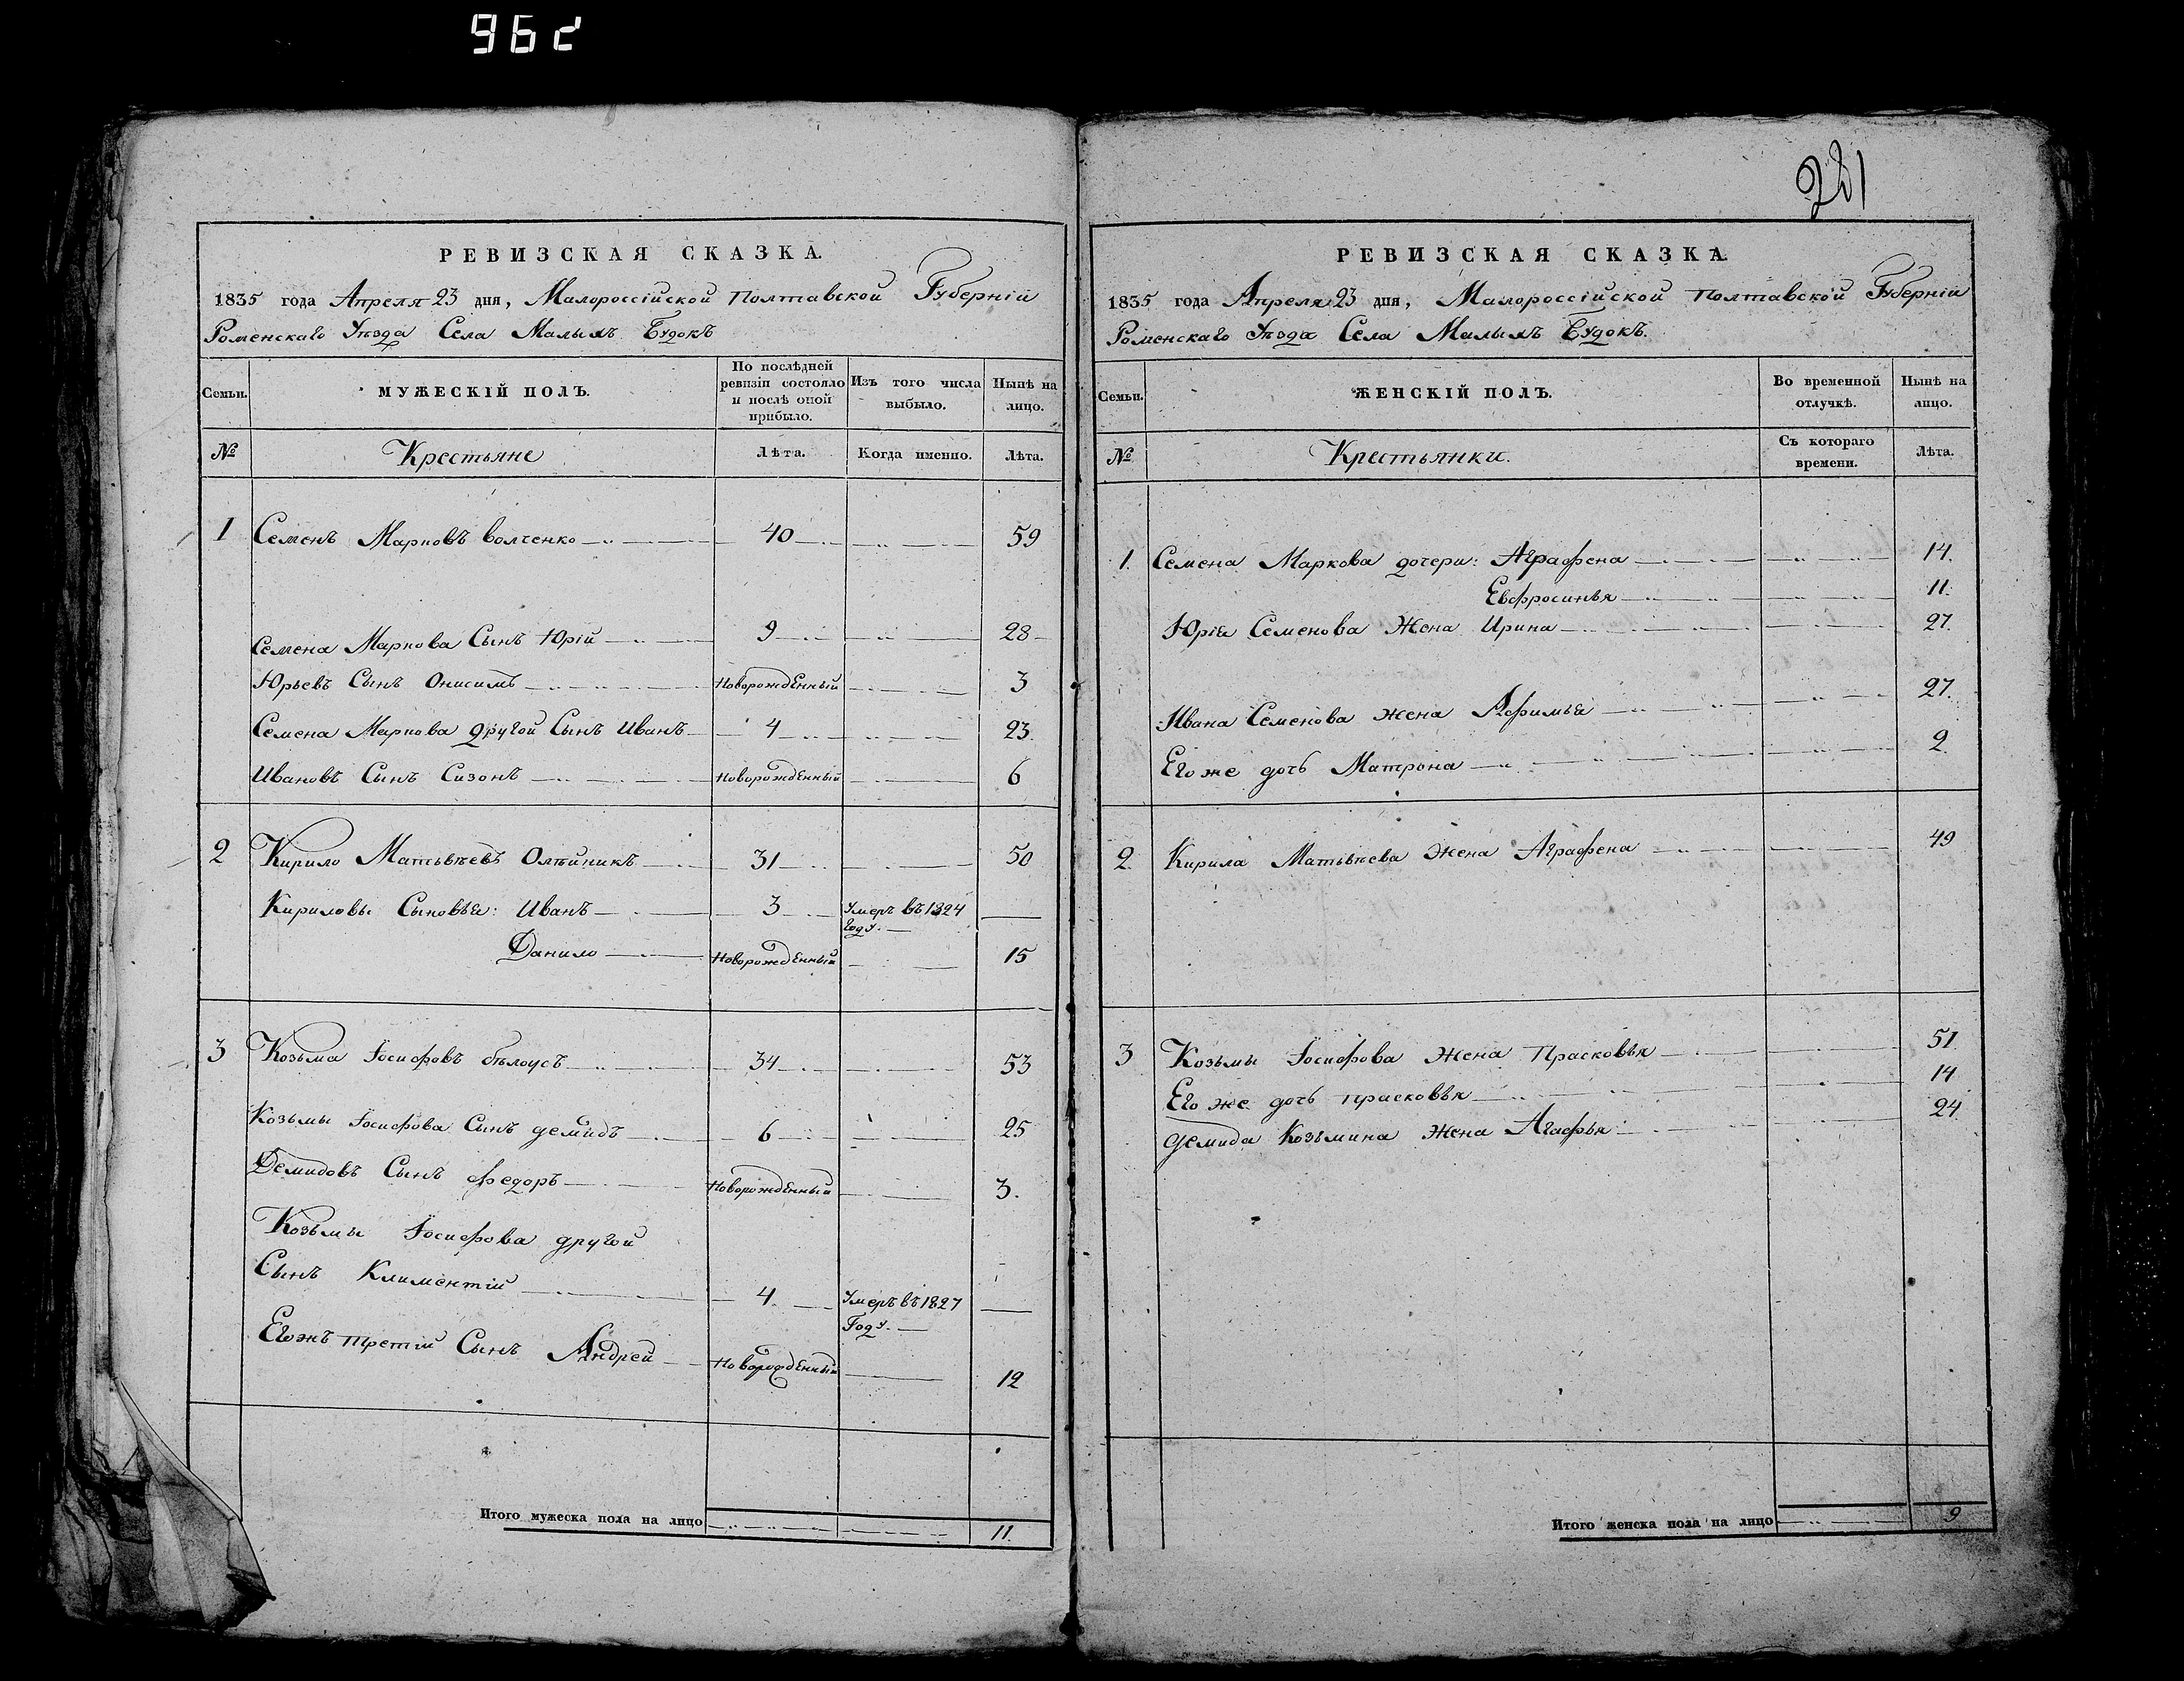 962
РЕВИЗСКАЯ СКАЗКА.
1835 года Апреля 23 дня, Малороссійской Полтавской Губерніи
Роменскаго Уѣзда Села Малыхъ Будокъ
Семьи.
МУЖЕСКІЙ ПОЛЪ.
По послѣдней ревизіи состояло и послѣ оной прибыло.
Изъ того числа выбыло.
Нынѣ на лицо.
№ Крестьяне Лѣта. Когда именно. Лѣта.
1 Семенъ Марковъ Волченко 40 59
Семена Маркова Сынъ Юрій 9 28
Юрьевъ Сынъ Онисимъ Новорожденный 3
Семена Маркова другой Сынъ Иванъ 4 23
Ивановъ Сынъ Сизонъ Новорожденный 6
2 Кирило Матвѣевъ Олѣйникъ 31 50
Кириловы Сыновья: Иванъ 3 Умеръ въ 1824
году.
Данило Новорожденный 15
3 Козьма Іосифовъ бѣлоусъ 34 53
Козьмы Іосифова Сынъ демидъ 6 25
Демидовъ Сынъ федоръ Новорожденный 3.
Козьмы Іосифова другой
Сынъ Климентій 4 Умеръ въ 1827
Году.
Егожъ третій Сынъ Андрей Новорожденный 12
Итого мужеска пола на лицо 11.
221
РЕВИЗСКАЯ СКАЗКА.
1835 года Апреля 23 дня, Малороссійской Полтавской Губерніи
Роменскаго Уѣзда Села Малыхъ Будокъ.
Семьи.
ЖЕНСКІЙ ПОЛЪ.
Во временной отлучкѣ.
Нынѣ на лицо.
№ Крестьянки. Съ котораго времени. Лѣта.
1. Семена Маркова дочери: Аграфена 14.
Евфросинья 11.
Юрія Семенова Жена Ирина 27.
Ивана Семенова жена Афимья 27.
Его же дочь Матрона 2.
2. Кирила Матвѣева Жена Аграфена 49
3 Козьмы Іосифова Жена Прасковья 51.
Его же дочь прасковья 14
демида Козьмина Жена Агафья 24
Итого женска пола на лицо 9